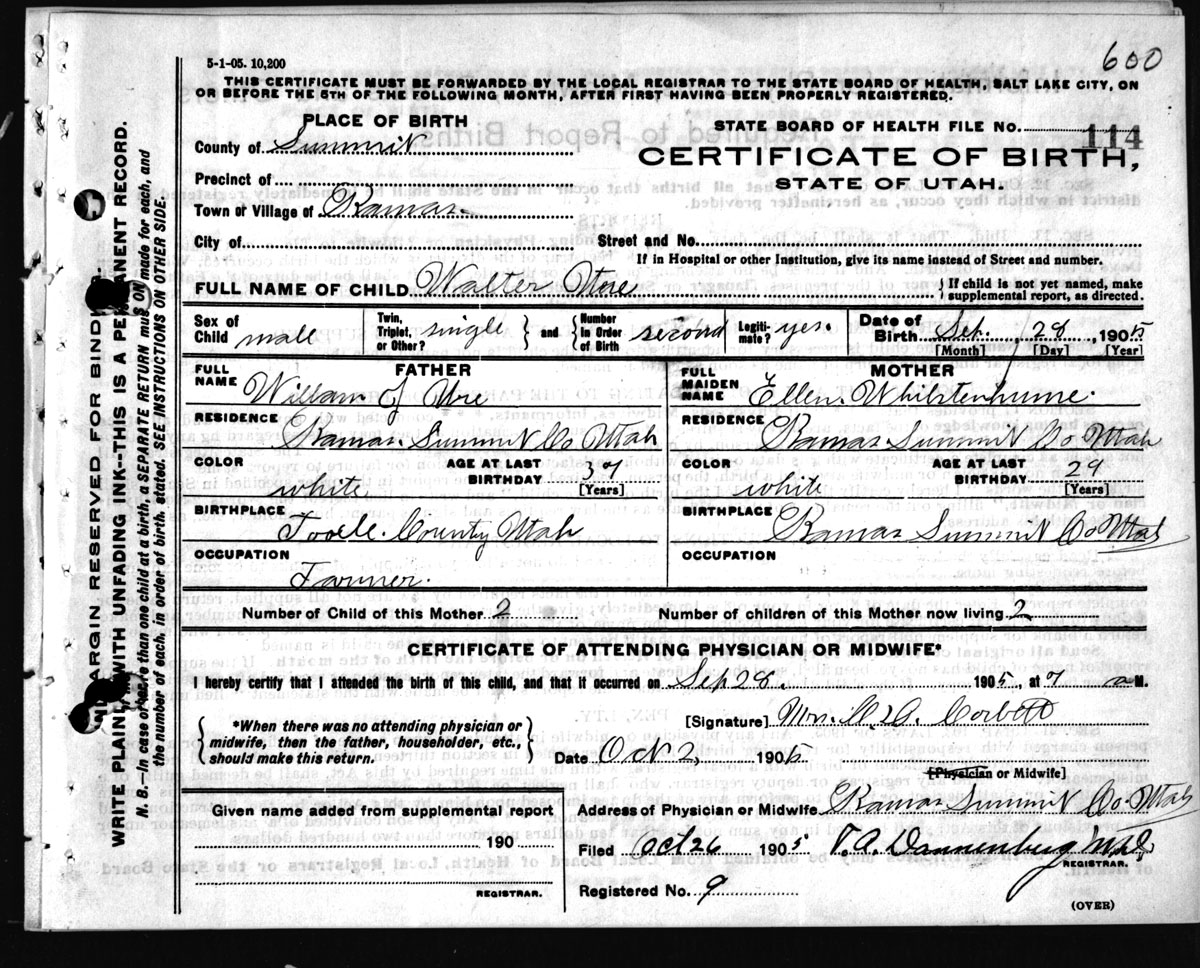 600
5-1-05. 10,200
THIS CERTIFICATE MUST BE FORWARDED BY THE LOCAL REGISTRAR TO THE STATE BOARD OF HEALTH, SALT LAKE CITY, ON
OR BEFORE THE 5TH OF THE FOLLOWING MONTH, AFTER FIRST HAVING BEEN PROPERLY REGISTERED.
PLACE OF BIRTH
County of Summit
Precinct of
Town or Village of Kamas.
City of
STATE BOARD OF HEALTH FILE NO. 114
CERTIFICATE OF BIRTH,
STATE OF UTAH.
Street and No.
If in Hospital or other Institution, give its name instead of Street and number.
FULL NAME OF CHILD Walter Ure } If child is not yet named, make
supplemental report, as directed.
Sex of Child male
Twin, Triplet, or Other? single } and { Number in Order of Birth second
Legitimate? yes.
Date of Birth Sep. 28, 1905
[Month] [Day] [Year]
FATHER
FULL NAME William J Ure
RESIDENCE Kamas. Summit Co Utah
COLOR white.
AGE AT LAST BIRTHDAY 37
[Years]
BIRTHPLACE Tooele. County Utah
OCCUPATION Farmer.
MOTHER
FULL MAIDEN NAME Ellen
RESIDENCE Kamas Summit Co Utah
COLOR white
AGE AT LAST BIRTHDAY 29
[Years]
BIRTHPLACE Kamas Summit Co Utah
OCCUPATION
Number of Child of this Mother 2
Number of children of this Mother now living 2
CERTIFICATE OF ATTENDING PHYSICIAN OR MIDWIFE*
I hereby certify that I attended the birth of this child, and that it occurred on Sep 28. 1905, at 7 a M.
{ *When there was no attending physician or
midwife, then the father, householder, etc.,
should make this return. }
[Signature] Mrs. Corbett
Date Oct 2, 1905
[Physician or Midwife]
Given name added from supplemental report
190
REGISTRAR.
Address of Physician or Midwife Kamas Summit Co. Utah
Filed Oct 26 1905 T.A. Dannenberg M.D.
REGISTRAR.
Registered No. 9
(OVER)
MARGIN RESERVED FOR BINDING.
WRITE PLAINLY WITH UNFADING INK--THIS IS A PERMANENT RECORD.
N. B.--In case of more than one child at a birth, a SEPARATE RETURN must be made for each, and
the number of each, in order of birth, stated. SEE INSTRUCTIONS ON OTHER SIDE.